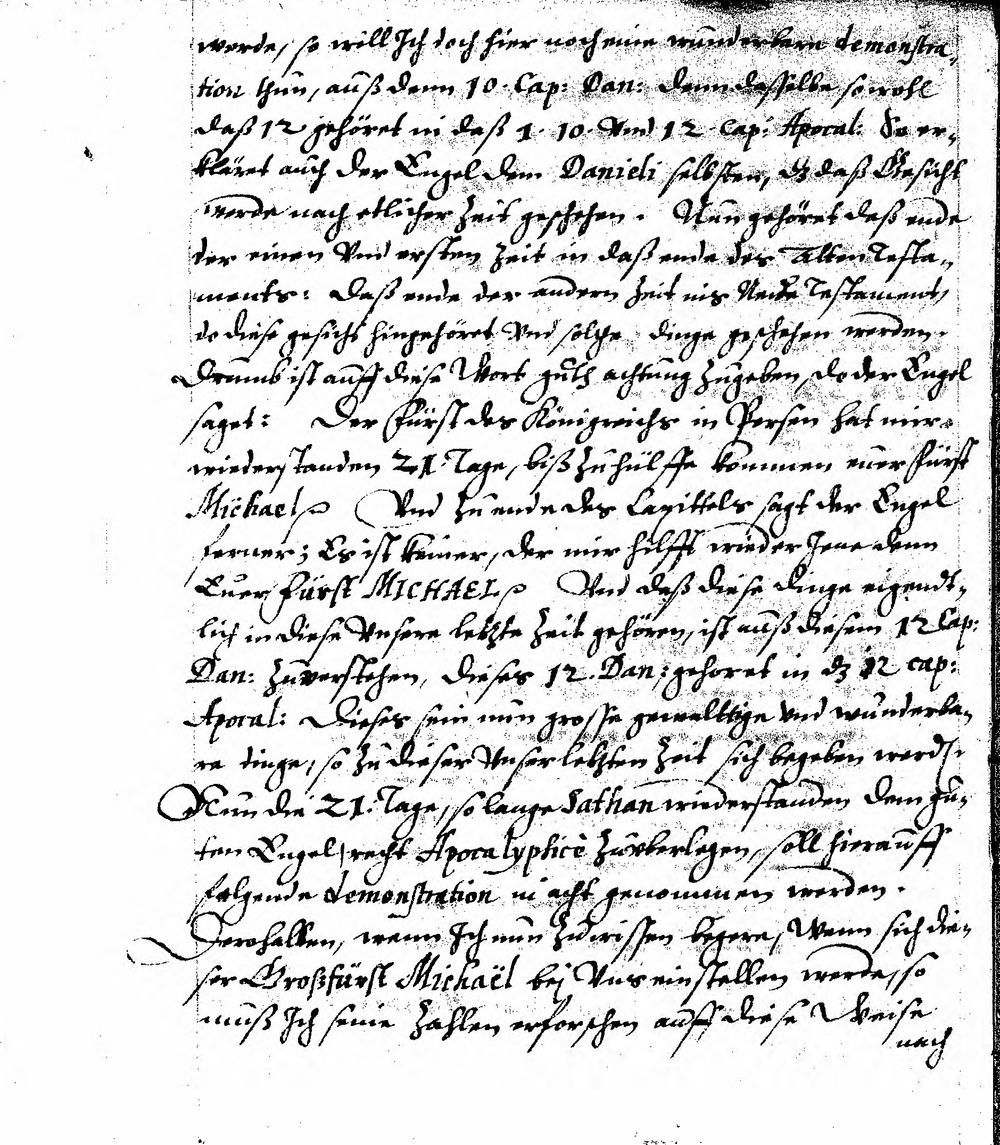 werde, so will Ich doch hier noch eine wunderbare demonstra-
tion thun, auß dem 10. Cap: Dan: denn dasselbe sowohl
daß 12 gehöret in daß 1. 10. Und 12 Cap: Apocal: So er-
kläret auch der Engel dem Danieli selbsten, dz daß Gesicht
werde nach etlicher Zeit geschehen. Nun gehöret daß ende
der einen Und ersten Zeit in daß ende des Alten Testa-
ments: Daß ende der andern Zeit ins Neue Testament,
do diese gesicht hingehöret Und solche dinge geschehen werden.
Drumb ist auff diese Wort guth achtung zugeben, do der Engel
saget: Der Fürst des Königreichs in Persen hat mir
wiederstanden 21. Tage, biß zuhülffe kommen euer Fürst
Michael Und zu ende des Capittels sagt der Engel
ferner; Es ist keiner, der mir hilfft wieder Jene denn
Euer Fürst MICHAEL Und daß diese dinge eigendt-
lich in diese Unsere letzte Zeit gehören, ist auß diesem 12 Cap:
Dan: zuverstehen, dieses 12. Dan: gehoret in dz 12 cap:
Apocal: Dieses sein nun grosse gewalttige Und wunderba-
re dinge, so zu dieser Unser letzten Zeit sich begeben werden.
Nun die 21. Tage, so lange Sathan wiederstanden dem gu-
ten Engel, recht Apocalyptice zuüberlegen, soll hierauff
folgende demonstration in acht genommen werden.
Derohalben, wenn Ich nun zuwissen begere, Wenn sich die-
ser Großfürst Michaël bej Uns einstellen werde, so
muß Ich seine Zahlen erforschen auff diese Weise
nach